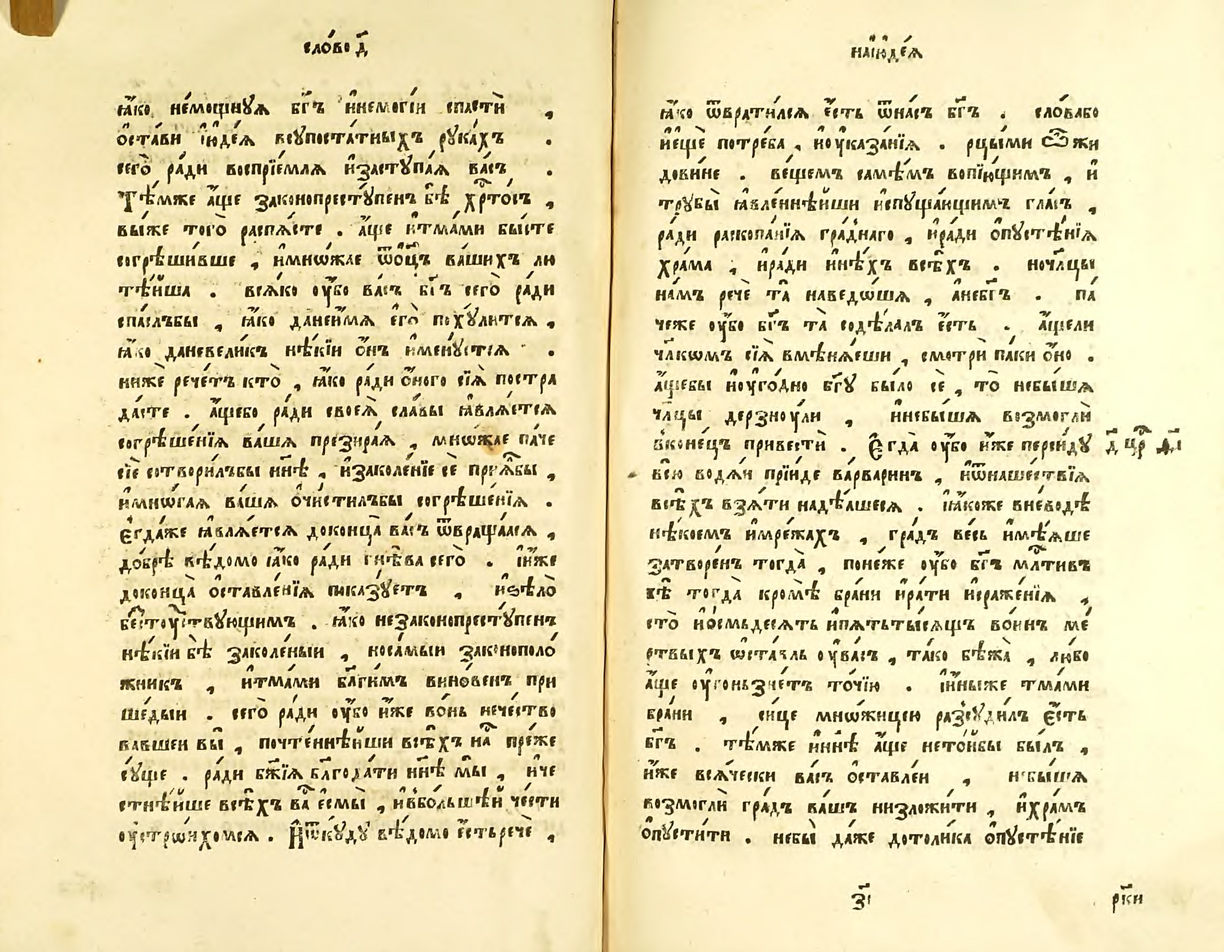 сло́во д҃
ꙗ҆́ко не́мощнꙋѧ бг҃ъ и҆немогі́и спастѝ ,
ѻ҆ста́ви і҆ꙋде́ѧ всꙋпоста́тныхъ рꙋка́хъ .
сегѡ̀ ра́ди воспріе́млѧ и҆застꙋпа́ѧ ва́съ .
Тѣ́мже а҆́ще законопрестꙋ́пенъ бѣ̀ хрⷭ҇то́съ ,
вы́же того̀ распѧ́сте . а҆́ще и҆тма́ми бы́сте
согрѣши́вше , и҆мно́жае ѿѻ҆ц҃ъ ва́шихъ лю
тѣ́йша . всѧ́ко ᲂу҆́бо ва́съ бг҃ъ сегѡ̀ ра́ди
спа́слъбы , ꙗ҆́ко данеи́мѧ є҆гѡ̀ похꙋ́литсѧ ,
ꙗ҆́ко даневели́къ нѣ́кіи ѻ҆́нъ и҆менꙋ́етсѧ .
нижѐ рече́тъ кто̀ , ꙗ҆́ко ра́ди ѻ҆́ного сїѧ̀ постра
да́сте . а҆́щебо ра́ди своеѧ̀ сла́вы ꙗ҆влѧ́етсѧ
согрѣше́нїѧ ва́шѧ презира́ѧ , мно́жае па́че
сїѐ сотвори́лъбы нн҃ѣ , и҆заколе́нїе сѐ прїѧ́лбы ,
и҆мнѡ́гаѧ ва́шѧ ѻ҆чи́стилъбы согрѣше́нїѧ .
є҆гда́же ꙗ҆влѧ́етсѧ доконца̀ ва́съ ѿвраща́ѧсѧ ,
до́брѣ вѣ́домо ꙗ҆́ко ра́ди гнѣ́ва сегѡ̀ . и҆и҆́же
доконца̀ ѻ҆ставле́нїѧ показꙋ́етъ , и҆ѕѣлѡ̀
безстꙋ́дствꙋющимъ . ꙗ҆́ко незаконопрестꙋ́пенъ
нѣ́кіи бѣ̀ заколе́ныи , носа́мыи законополо́
жникъ , и҆тма́ми бл҃ги́мъ вино́венъ при
ше́дыи . сегѡ̀ ра́ди ᲂу҆́бо и҆́же во́нь нече́ство
вавшеи вы̀ , почте́ннѣйши всѣ́хъ на́съ пре́же
сꙋ́ще . ра́ди бж҃їѧ бл҃года́ти нн҃ѣ мы̀ , и҆че
стнѣ́йше всѣ́хъ ва́съ є҆смы̀ , и҆вбо́льшѣй че́сти
ᲂу҆стро́ихомсѧ . И҆ѿкꙋ́дꙋ вѣ́домо є҆́сть речѐ ,
наі҆ꙋде́ѧ
ꙗ҆́ко ѿврати́лсѧ є҆́сть ѿна́съ бг҃ъ . сло́вабо
и҆ещѐ потре́ба , и҆ᲂу҆каза́нїѧ . рцы́ми ѽжи
до́вине . ве́щемъ самѣ́мъ вопїю́щимъ , и҆
трꙋбы̀ ꙗ҆́вленнѣйши и҆спꙋща́ющимъ гла́съ ,
ра́ди раскопа́нїѧ гра́днаго , и҆ра́ди ѻ҆пꙋстѣ́нїѧ
хра́ма , и҆ра́ди и҆нѣ́хъ всѣ́хъ . ночл҃цы
на́мъ речѐ та̀ наведо́шѧ , а҆небг҃ъ . па́
чеже ᲂу҆́бо бг҃ъ та̀ содѣ́лалъ є҆́сть . а҆́щели
чл҃кѡмъ сїѧ̀ вмѣнѧ́еши , смотрѝ па́ки ѻ҆́но .
а҆́щебы ноᲂу҆го́дно бг҃ꙋ бы́ло сѐ , то̀ небы́шѧ
чл҃цы дерзнꙋ́ли , и҆небы́шѧ возмоглѝ
вконе́цъ привестѝ . Є҆гда̀ ᲂу҆́бо и҆́же персі́дꙋ
всю̀ водѧ́и прїи́де ва́рваринъ , и҆ѿнаше́ствїѧ
всѣ́хъ взѧ́ти надѣ́ѧшесѧ . и҆ꙗ҆́коже вне́водѣ
нѣ́коемъ и҆мре́жахъ , гра́дъ ве́сь и҆мѣ́ѧше
затворе́нъ тогда̀ , поне́же ᲂу҆́бо бг҃ъ мл҃тивъ
бѣ̀ тогда̀ кромѣ̀ бра́ни и҆ра́ти и҆сраже́нїѧ ,
сто̀ и҆ѻ҆́смьдесѧтъ и҆пѧ́тьтысѧщъ во́инъ ме́
ртвыхъ ѡ҆ста́вль ᲂу҆ва́съ , та́ко бѣжа̀ , любо
а҆́ще ᲂу҆гоньзне́тъ то́чїю . и҆и҆́ныже тма́ми
бра́ни , си́це мно́жицею разсꙋди́лъ є҆́сть
бг҃ъ . тѣ́мже и҆нн҃ѣ а҆́ще нето́йбы бы́лъ ,
и҆́же всѧ́чески ва́съ ѻ҆ста́влей , небы́шѧ
возмоглѝ гра́дъ ва́шъ низложи́ти , и҆хра́мъ
ѻ҆пꙋсти́ти . небы̀ да́же дотоли́ка ѻ҆пꙋстѣ́нїе
з҃і
рⷭ҇ки